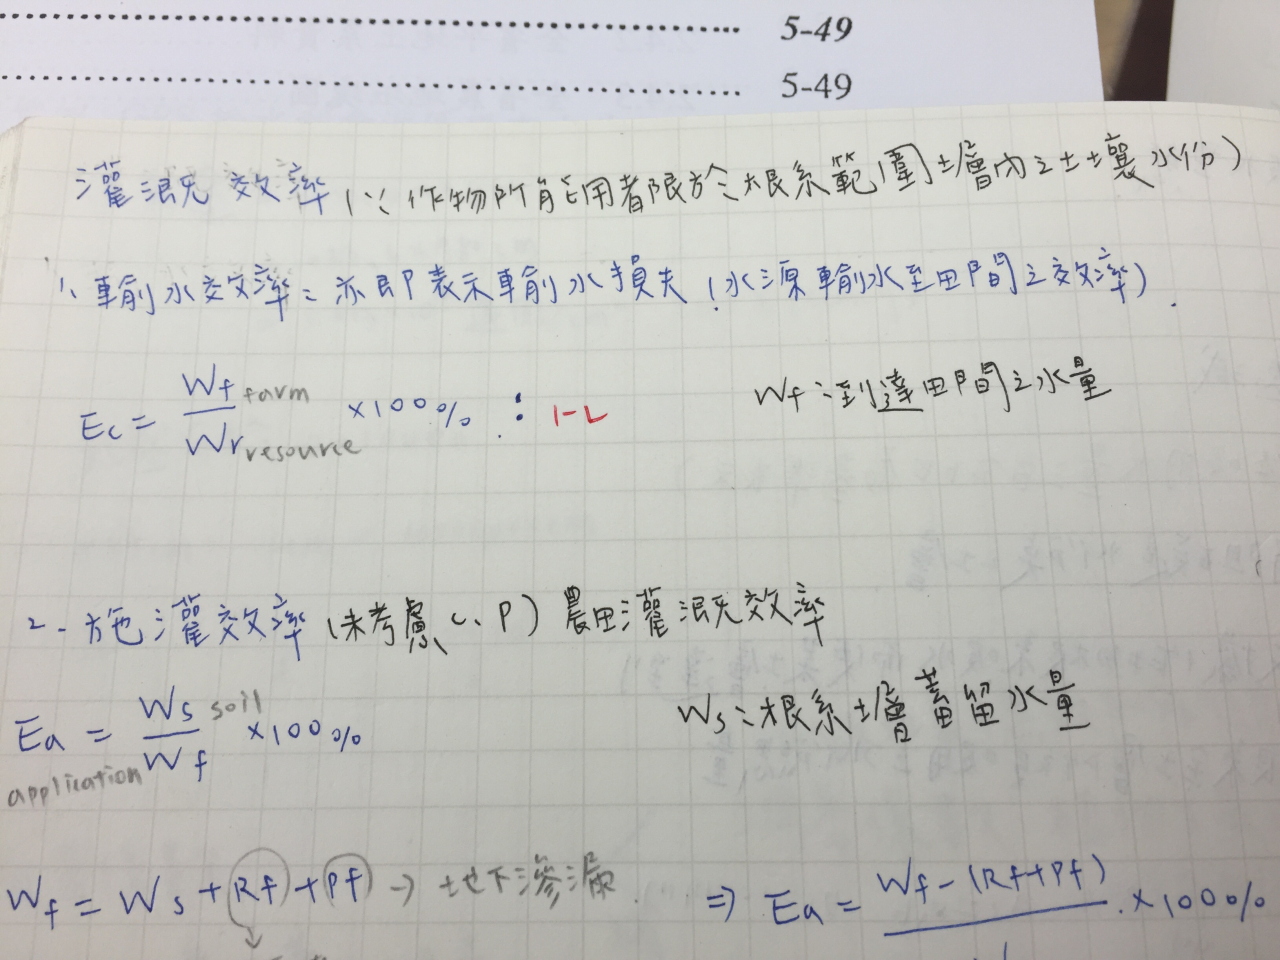 5-49
5-49
灌溉效率(∵作物所能用者限於根系範圍土層內之土壤水份)
1、輸水效率:亦即表示輸水損失(水源輸水至田間之效率).
Ec = Wf farm / Wr resource ×100% : 1-L
Wf:到達田間之水量
2. 施灌效率(未考慮C、P)農田灌溉效率
Ea application = Ws soil / Wf ×100%
Ws:根系土層蓄留水量
Wf = Ws + Rf + Pf → 地下滲漏
⇒ Ea = Wf-(Rf+Pf) ×100%